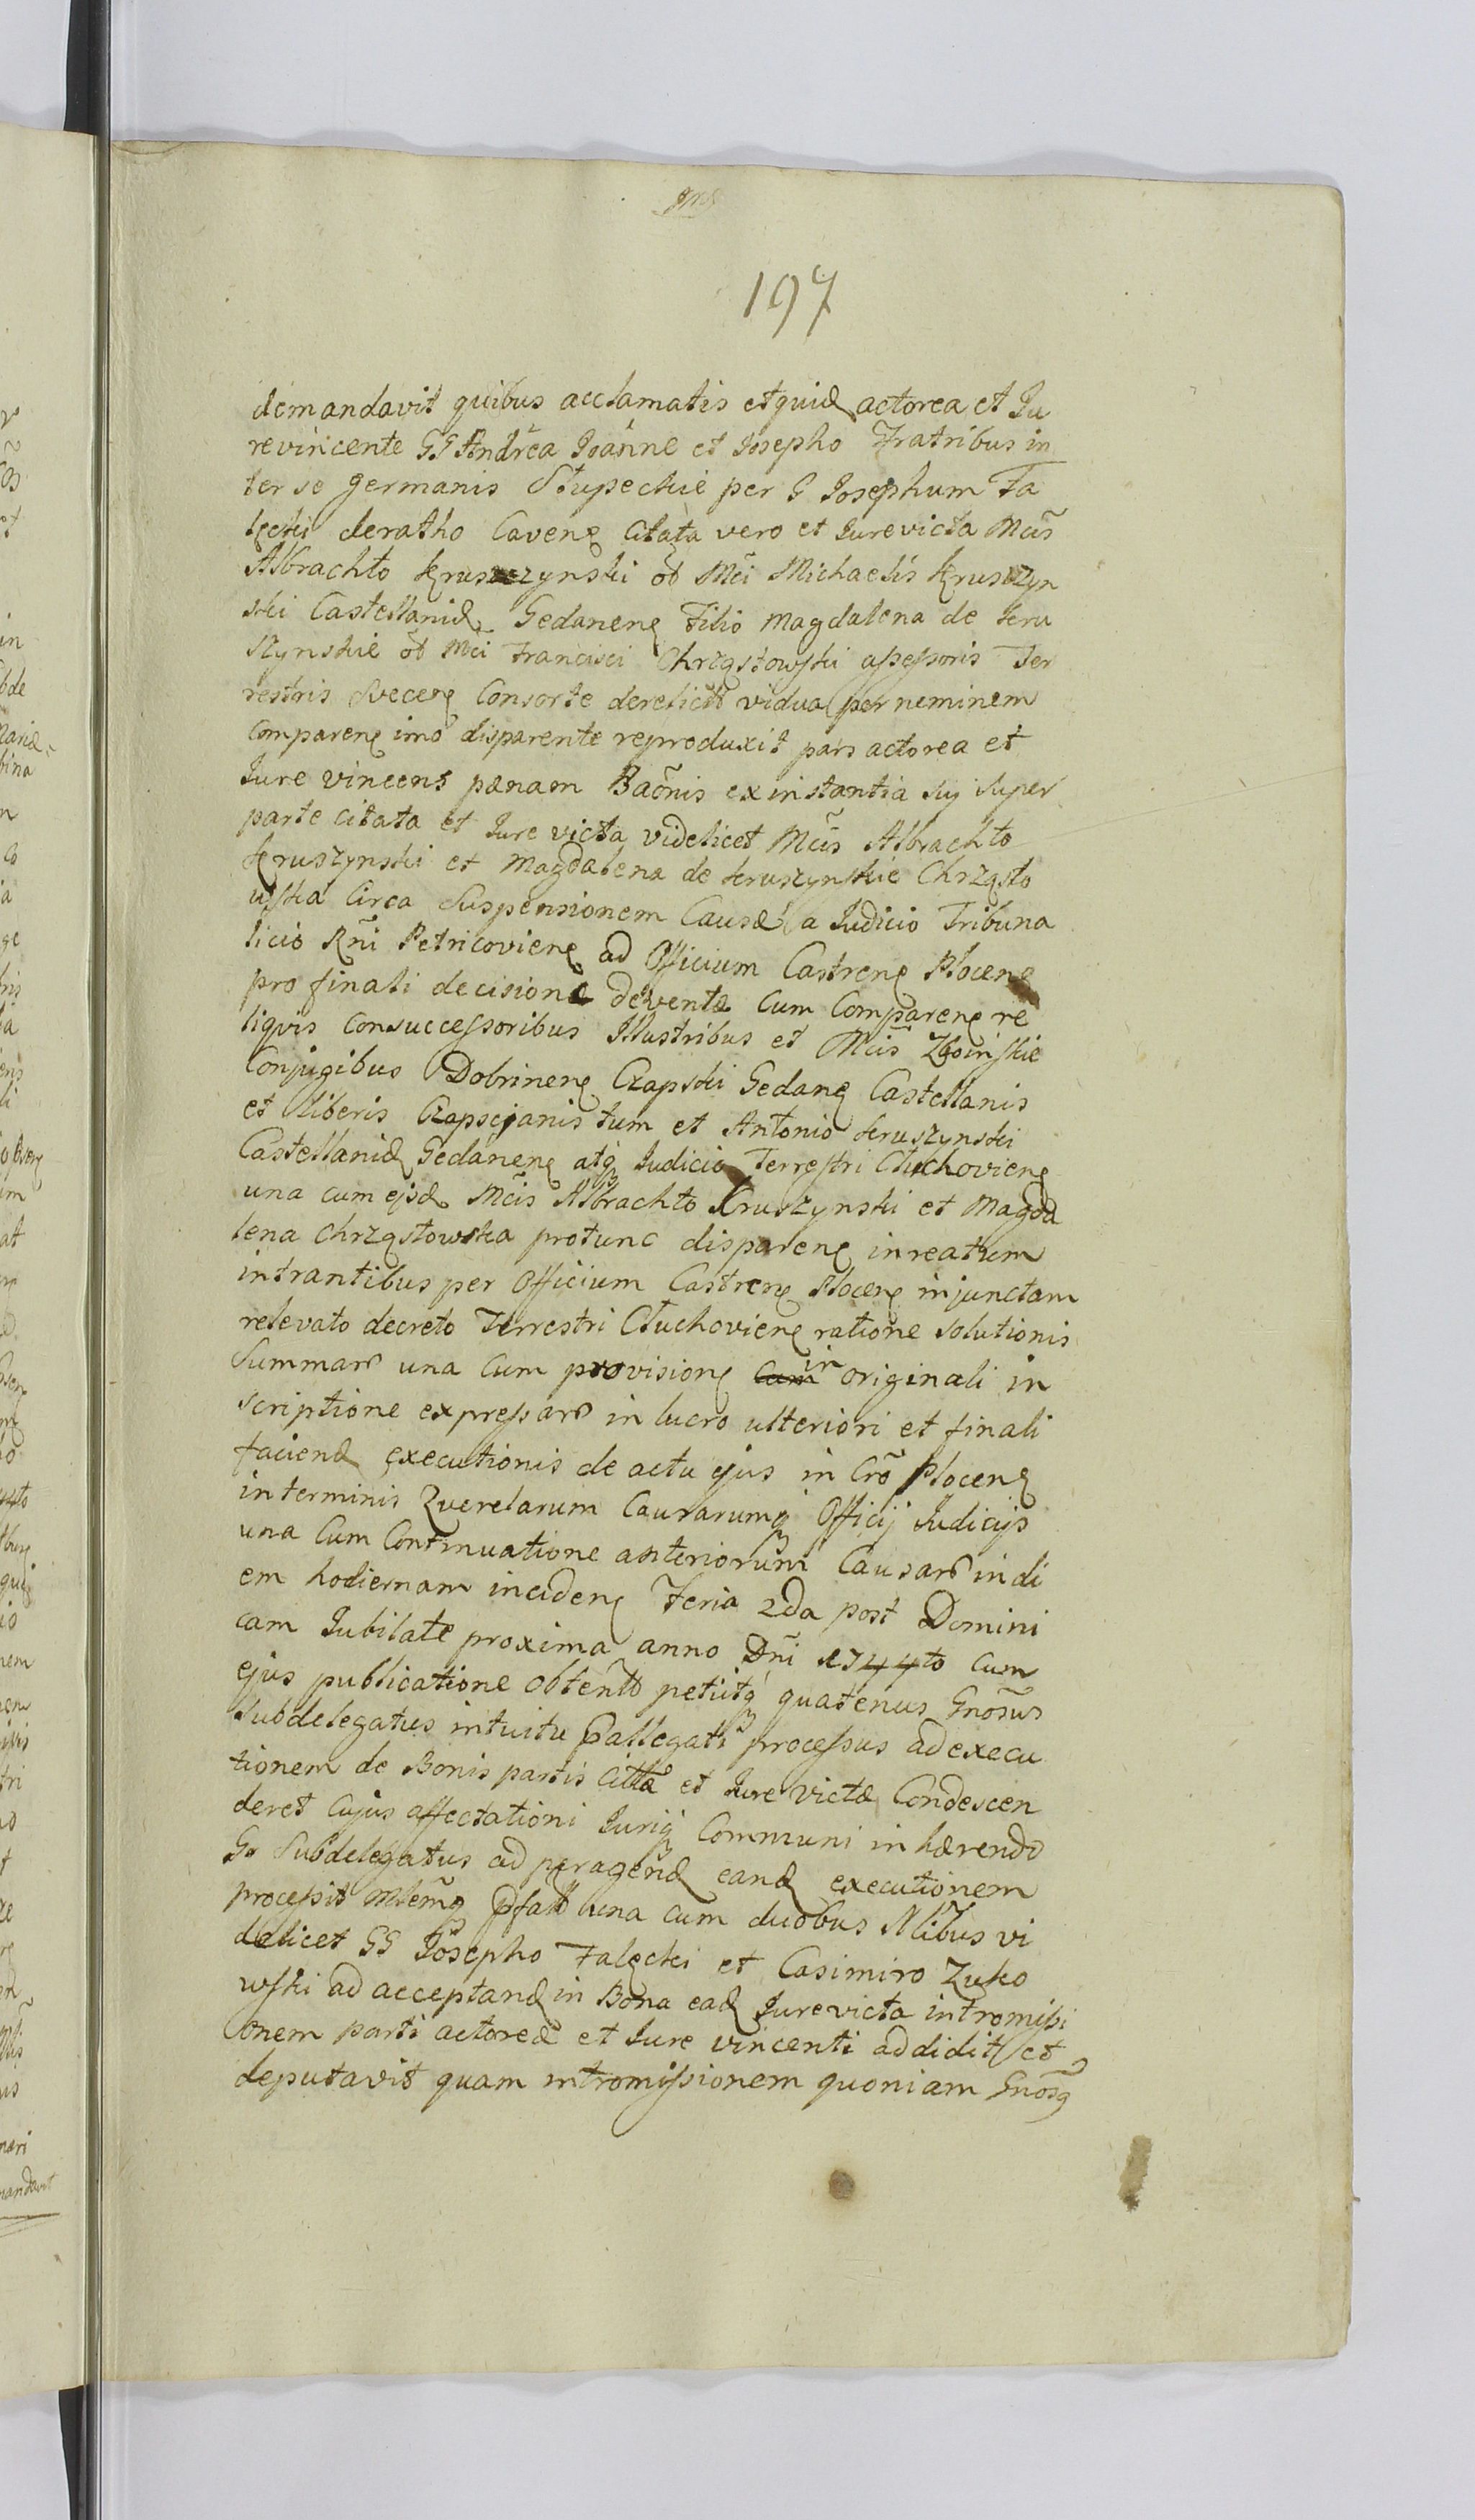 197
demandavit quibus acclamatis etquid actorea et Ju
revincente GG Andrea Joanne et Josepho Fratribus in
ter se germanis Słupeckie per G Josephum Fa
łęcki deratho Caven Citata vero et Jurevicta Mcis
Albrachto Kruszczynski ol Mci Michaelis Kruszyn
ski Castellanid Gedanen Filio Magdalena de Kru
szynskie ol Mci Francisci Chrząstowski assessoris Ter
restris Svecen Consorte derelicta vidua per neminem
Comparen imo disparente reproduxit pars actorea et
Jure vincens pænam Baonis ex instantia suj super
parte citata et Jure victa videlicet Mcis Albrachto
Kruszynski et Magdalena de Kruszynskie Chrząsto
wska Circa Suspensionem Causæ a Judicio Tribuna
licio Rni Petricovien ad Officium Castren Plocen
pro finali decisione deventæ Cum Comparen re
liqvis Consuccessoribus Illustribus et Mcis Zboinskie
Conjugibus Dobrinen Czapski Gedan Castellanis
et Liberis Czapscijanis tum et Antonio Kruszynski
Castellanid Gedanen atq Judicio Terrestri Cluchovien
una cum ejsd Mcis Albrachto Kruszynski et Magda
lena Chrząstowska protunc disparen in reatum
intrantibus per Officium Castren Plocen injunctam
relevato decreto Terrestri Cłuchovien ratione solutionis
Summar una Cum provisione Cum in originali in
scriptione expressar in lucro ulteriori et finali
faciend executionis de actu ejus in Cro Plocen
in terminis Querelarum Causarumq Officij Judicijs
una Cum Continuatione anteriorum Causar in di
em hodiernam inciden Feria 2da post Domini
cam Jubilate proxima anno Dni 1744to Cum
ejus publicatione obtent petijtq quatenus Gnosus
Subdelegatus intuitu pallegati processus ad execu
tionem de Bonis partis Citta et Jure victæ Condescen
deret Cujus affectationi Juriq Communi in hærendo
Gr Subdelegatus ad peragend eand executionem
processit Mlemq pfat una cum duobus Nlibus vi
delicet GG Josepho Fałęcki et Casimiro Zuko
wski ad acceptand in Bona ead Jurevicta intromissi
onem parti actoreæ et Jure vincenti addidit et
deputavit quam intromissionem quoniam Gnosq